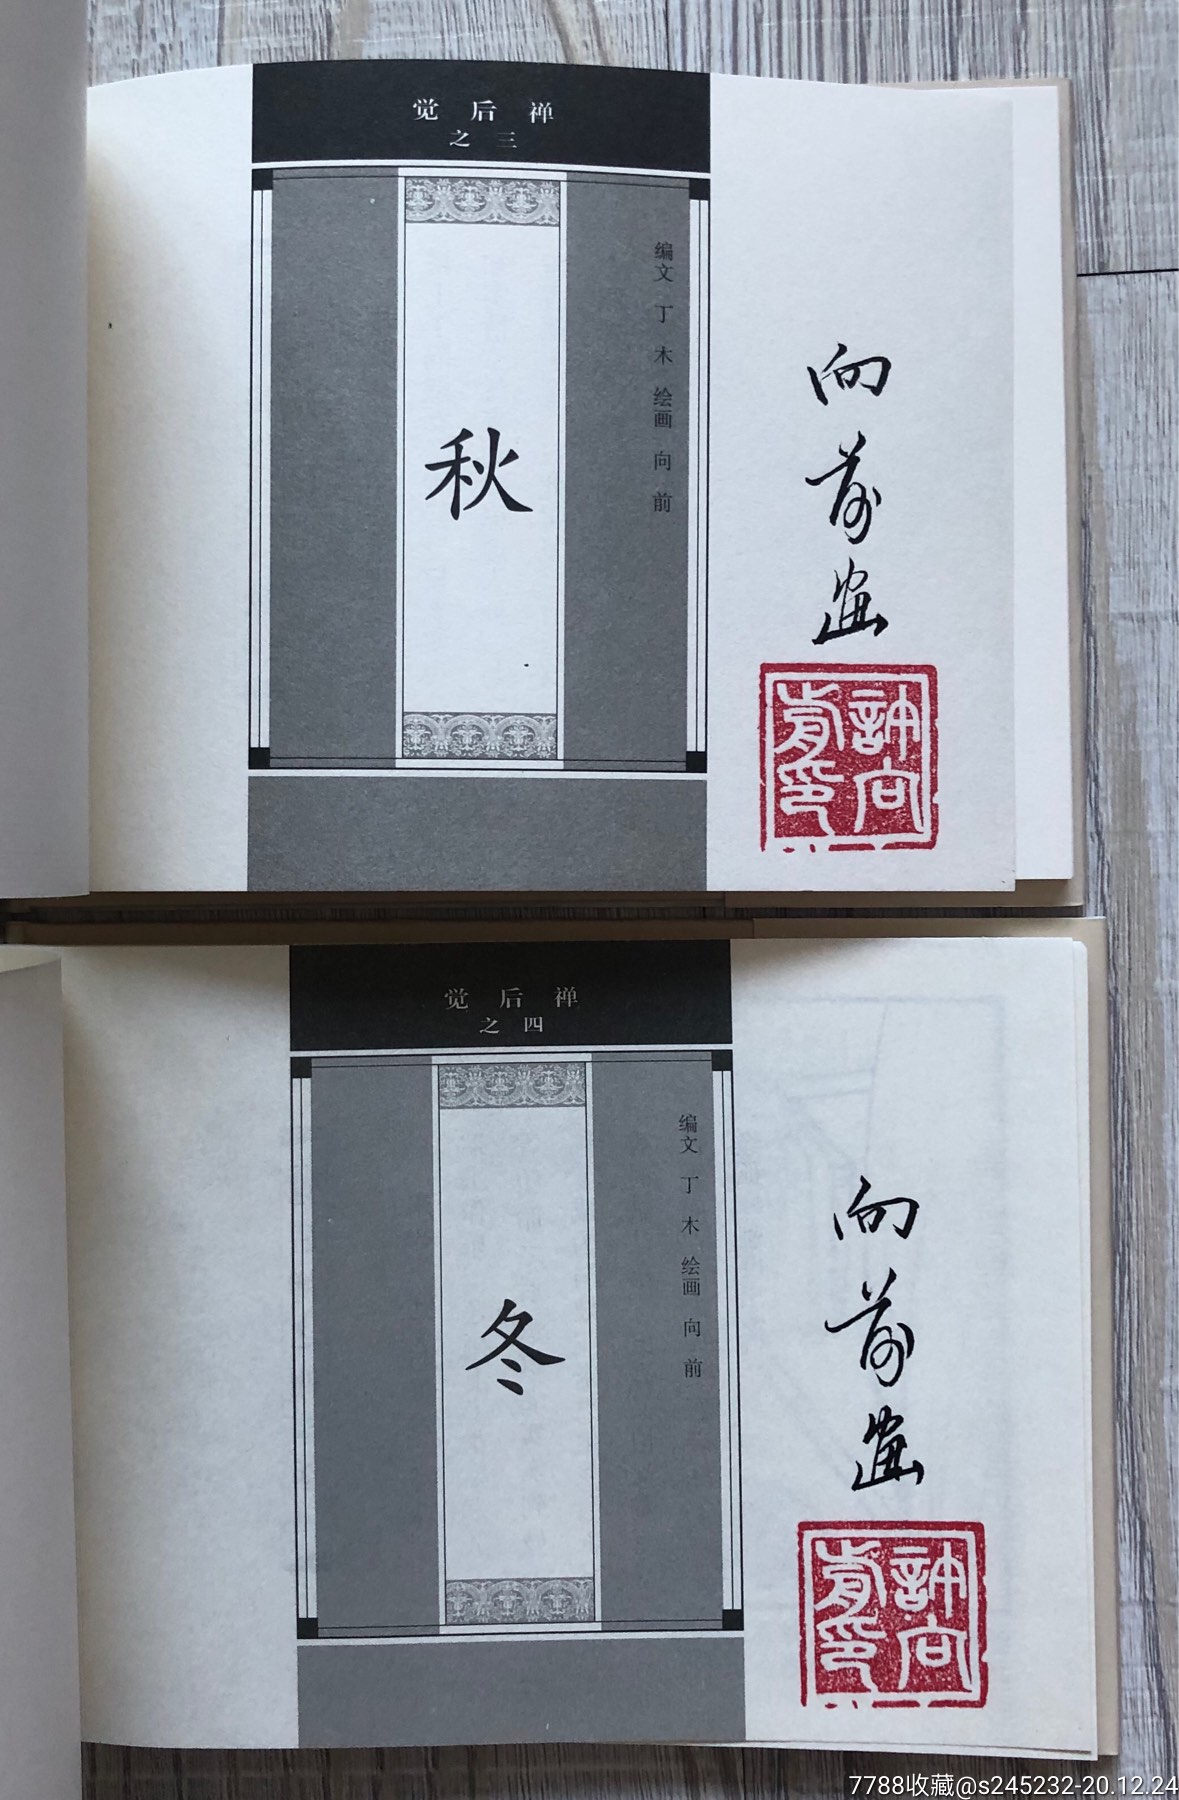 觉后禅
之三
编文 丁木 绘画 向前
秋
向前画
許向前印
觉后禅
之四
编文 丁木 绘画 向前
冬
向前画
許向前印
7788收藏@s245232-20.12.24